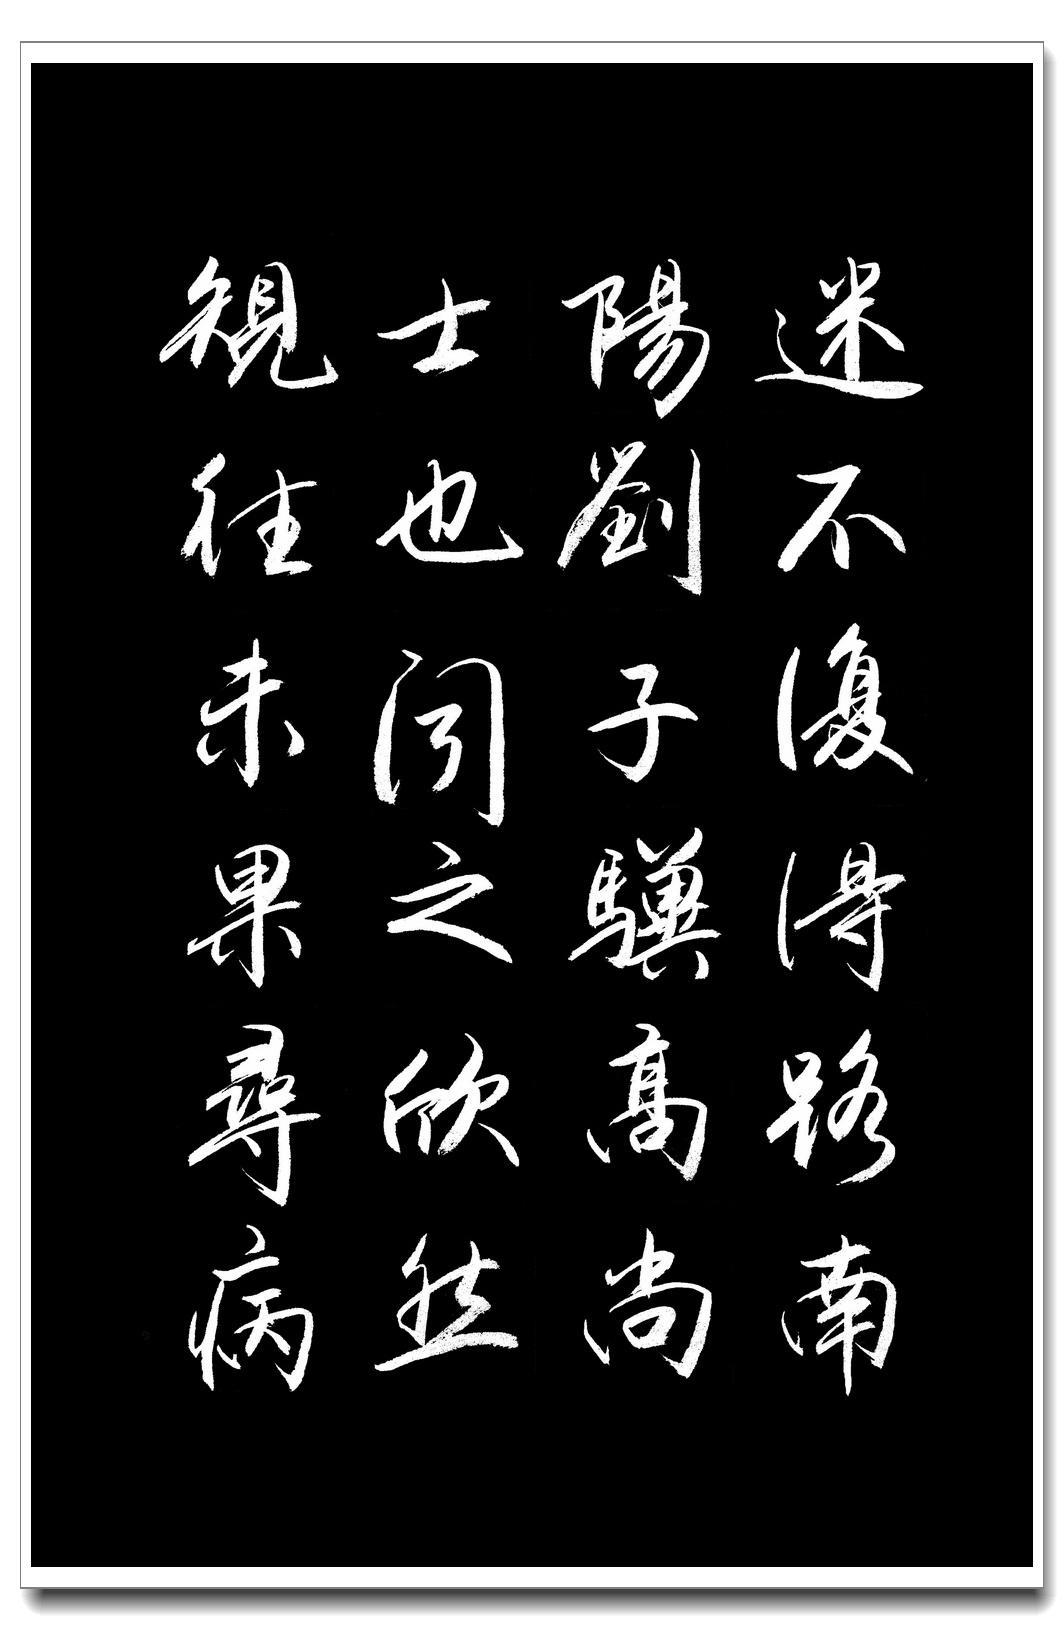 迷不復得路南
陽劉子驥高尚
士也聞之欣然
規往未果尋病